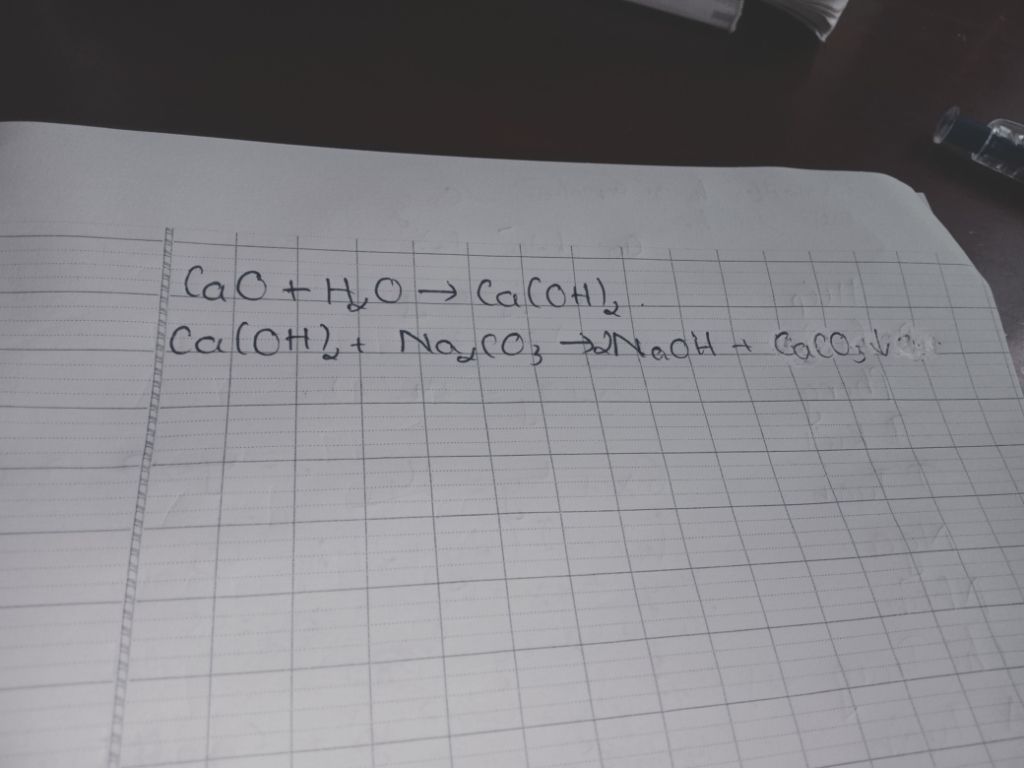 CaO + H₂O → Ca(OH)₂.
Ca(OH)₂ + Na₂CO₃ → 2NaOH + CaCO₃↓